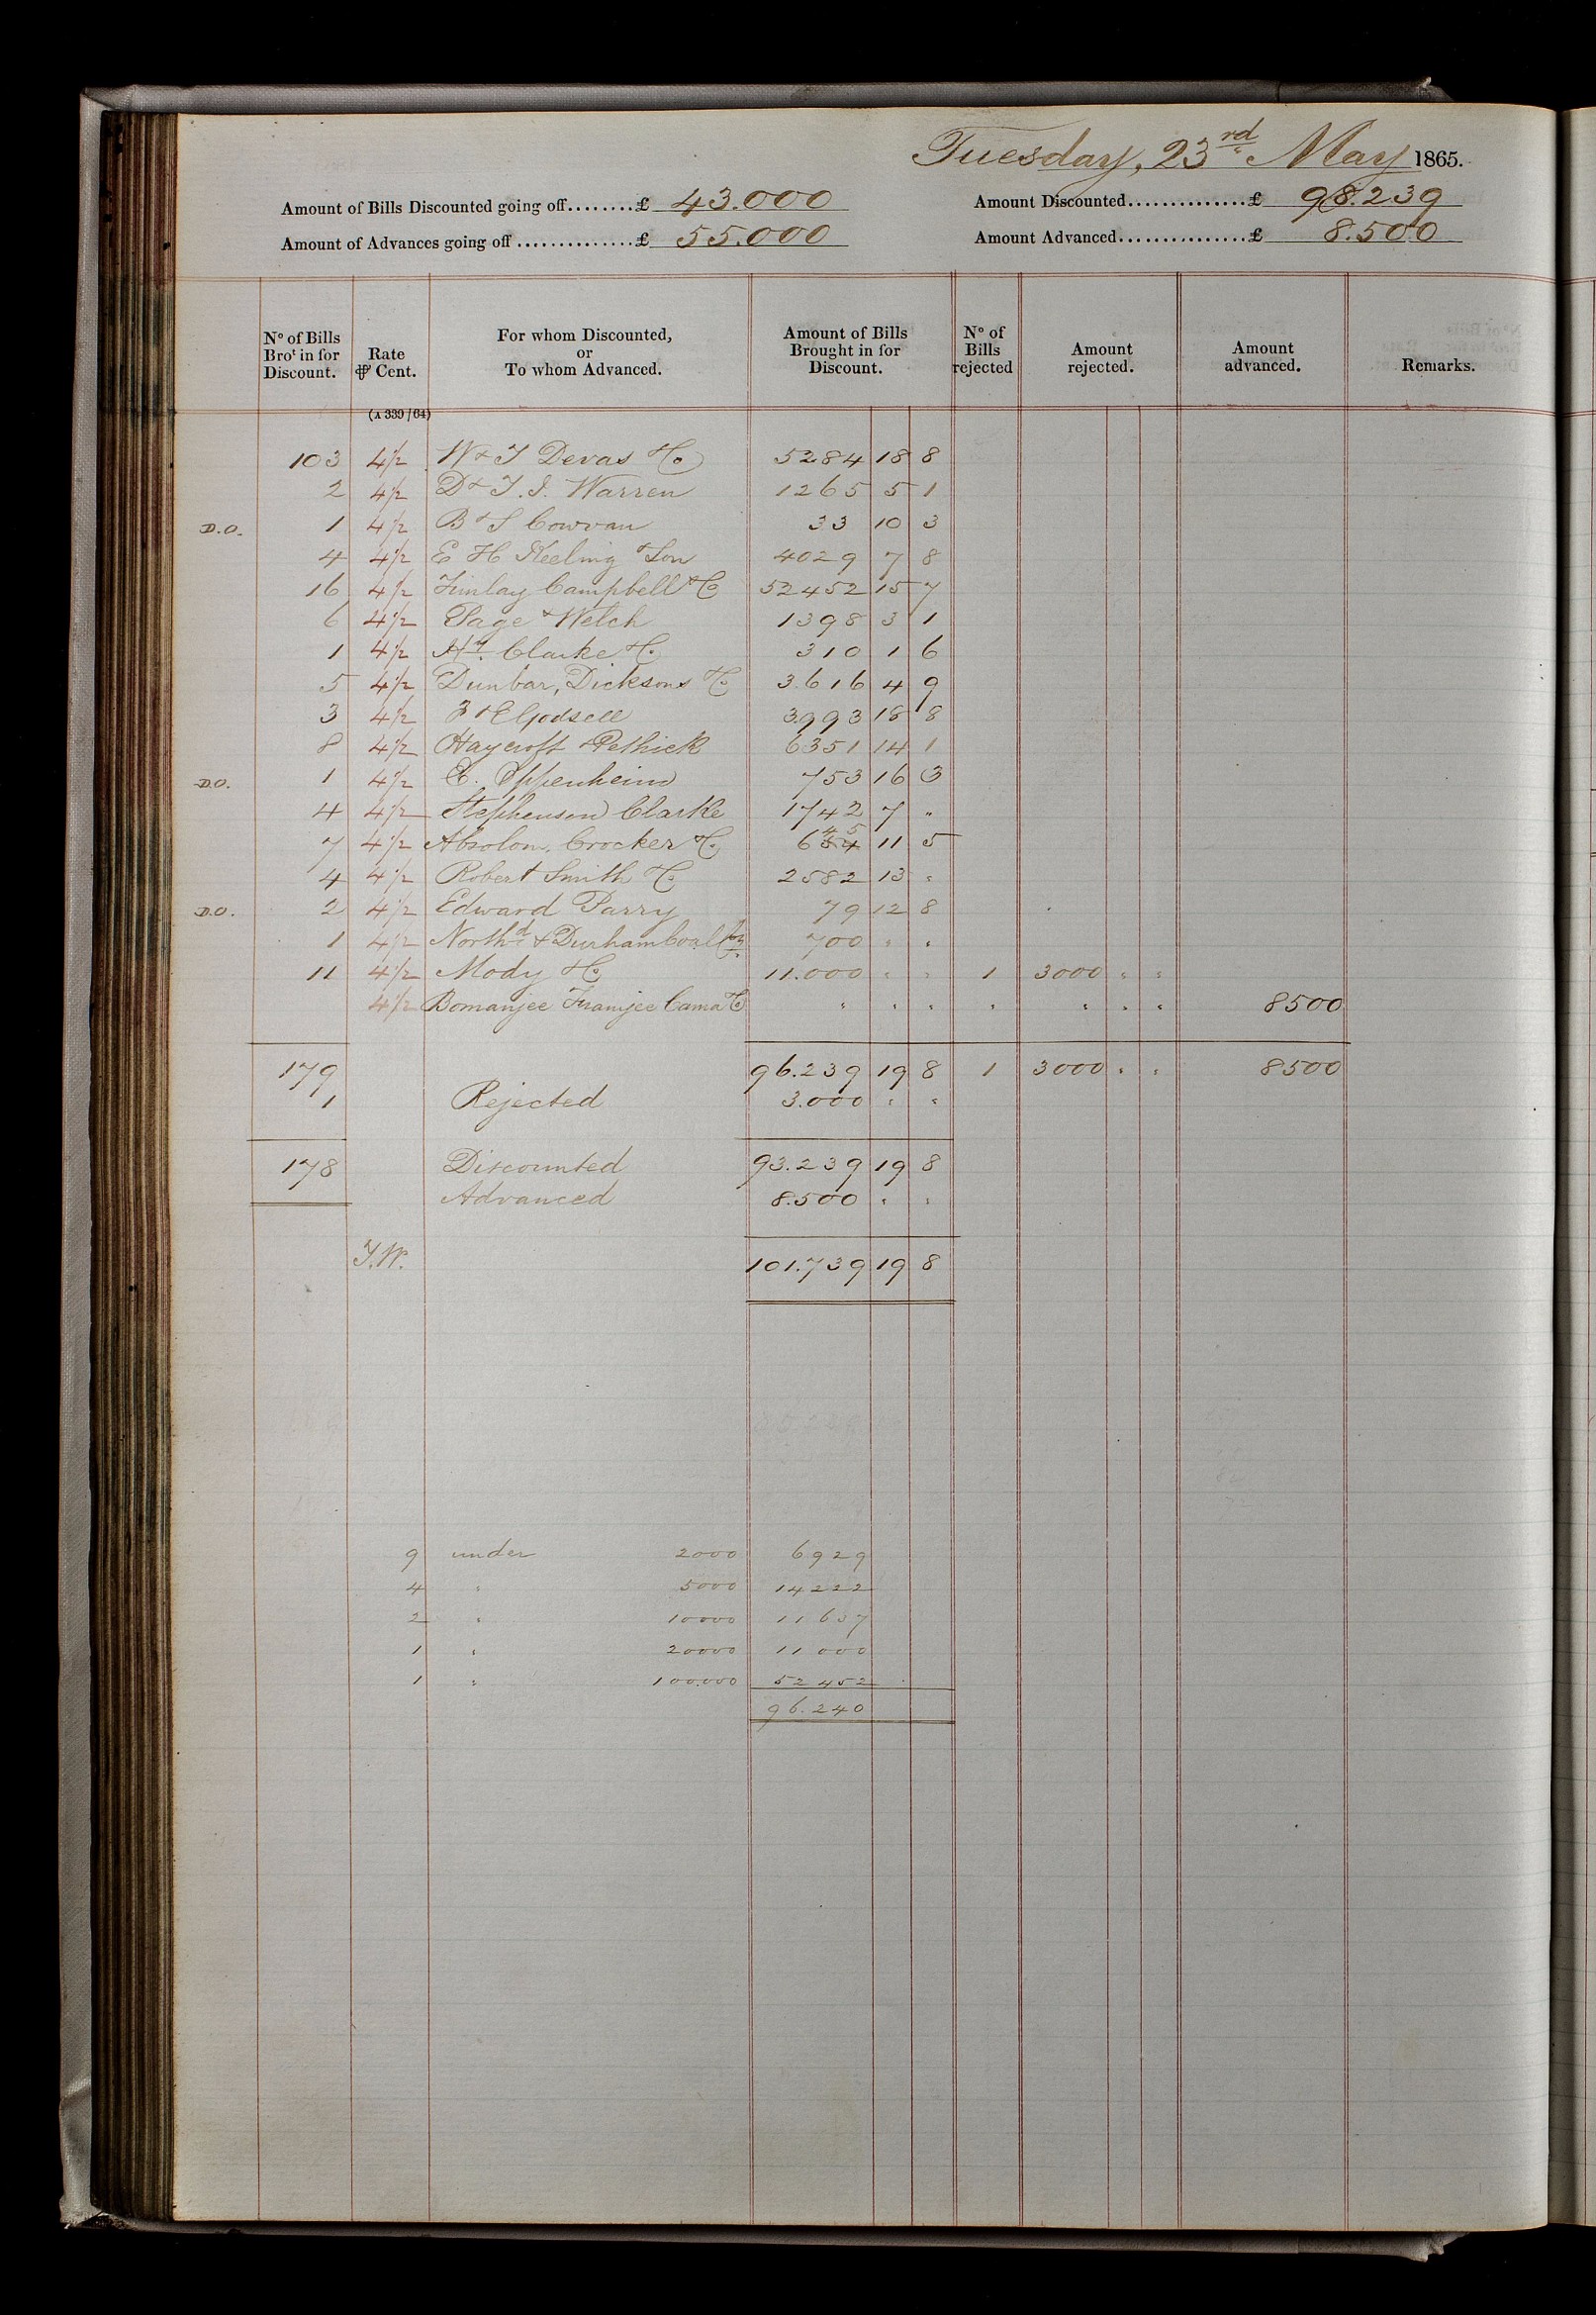 Tuesday, 23rd May 1865.
Amount of Bills Discounted going off........£ 43.000 Amount Discounted..............£ 98.239
Amount of Advances going off..............£ 55.000 Amount Advanced...............£ 8.500
No of Bills Brot in for Discount. Rate ⅌ Cent. For whom Discounted, or To whom Advanced. Amount of Bills Brought in for Discount. No of Bills rejected Amount rejected. Amount advanced. Remarks.
(A 339/64)
103 4½ W & T Devas & Co 5284 18 8
2 4½ D & T. J. Warren 1265 5 1
D.O. 1 4½ B & S Cowvan 33 10 3
4 4½ E H Keeling & Son 4029 7 8
16 4½ Finlay Campbell & Co 52452 15 7
6 4½ Page & Welch 1398 3 1
1 4½ Hy. Clarke & Co 310 1 6
5 4½ Dunbar, Dicksons & Co 3.616 4 9
3 4½ & E Godsell 3993 18 8
8 4½ Haycroft & Pethick 6351 14 1
D.O. 1 4½ Oppenheim 753 16 3
4 4½ Stephenson Clarke 1742 7 "
7 4½ Absolom, Crocker & Co 645 11 5
4 4½ Robert Smith & Co 2582 13 "
D.O. 2 4½ Edward Parry 79 12 8
1 4½ Northd & Durham Coal Co 700 " "
11 4½ Mody & Co 11.000 " " 1 3000 " "
4½ Bomanjee Framjee Cama & Co " " " " " " " 8500
179 96.239 19 8 1 3000 " " 8500
1 Rejected 3.000 " "
178 Discounted 93.239 19 8
Advanced 8.500 " "
T.W. 101.739 19 8
9 under 2000 6929
4 " 5000 14222
2 " 10000 11637
1 " 20000 11000
1 " 100.000 52452
96.240